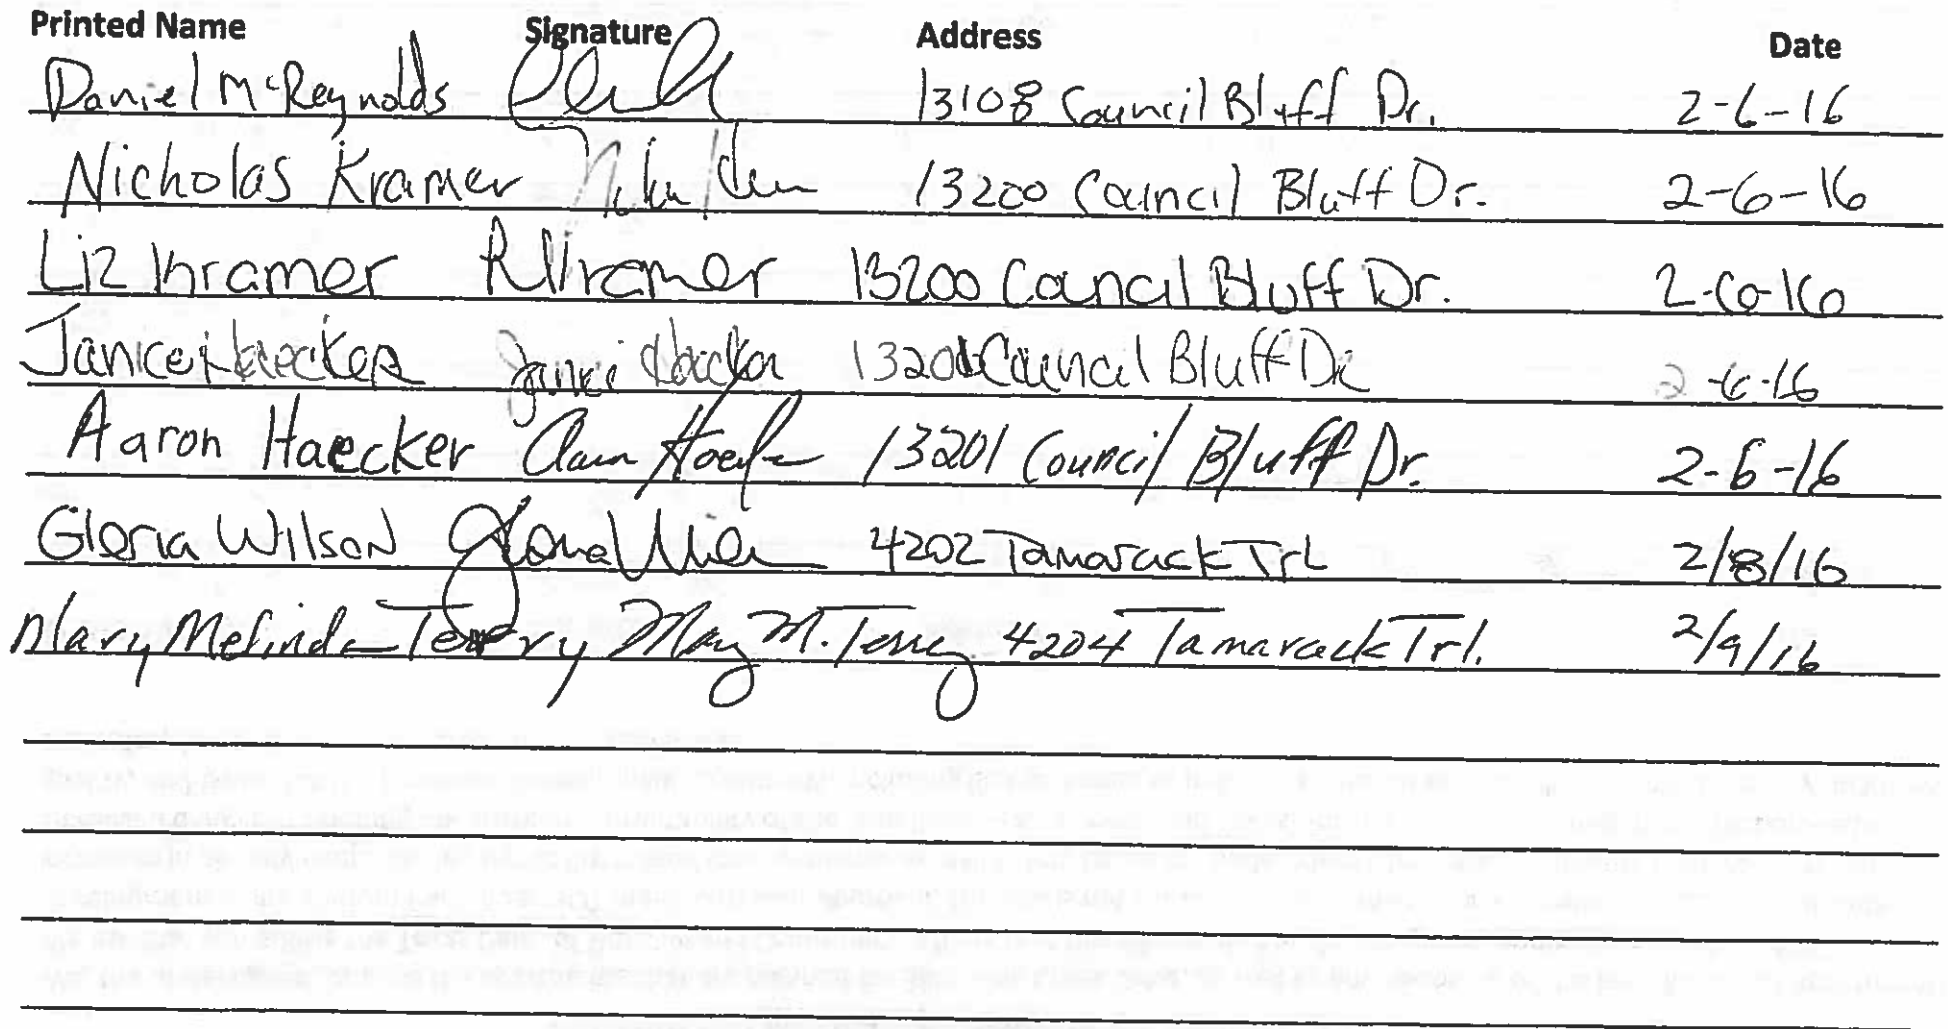 Printed Name Signature Address Date
Daniel McReynolds 13108 Council Bluff Dr. 2-6-16
Nicholas Kramer 13200 Council Bluff Dr. 2-6-16
Liz Kramer RKramer 13200 Council Bluff Dr. 2-6-16
Janice Haecker Janice Haecker 13201 Council Bluff Dr 2-6-16
Aaron Haecker Aaron Haecker 13201 Council Bluff Dr. 2-6-16
Gloria Wilson Gloria Wilson 4202 Tamarack Trl 2/8/16
Mary Melinda Terry Mary M. Terry 4204 Tamarack Trl. 2/9/16